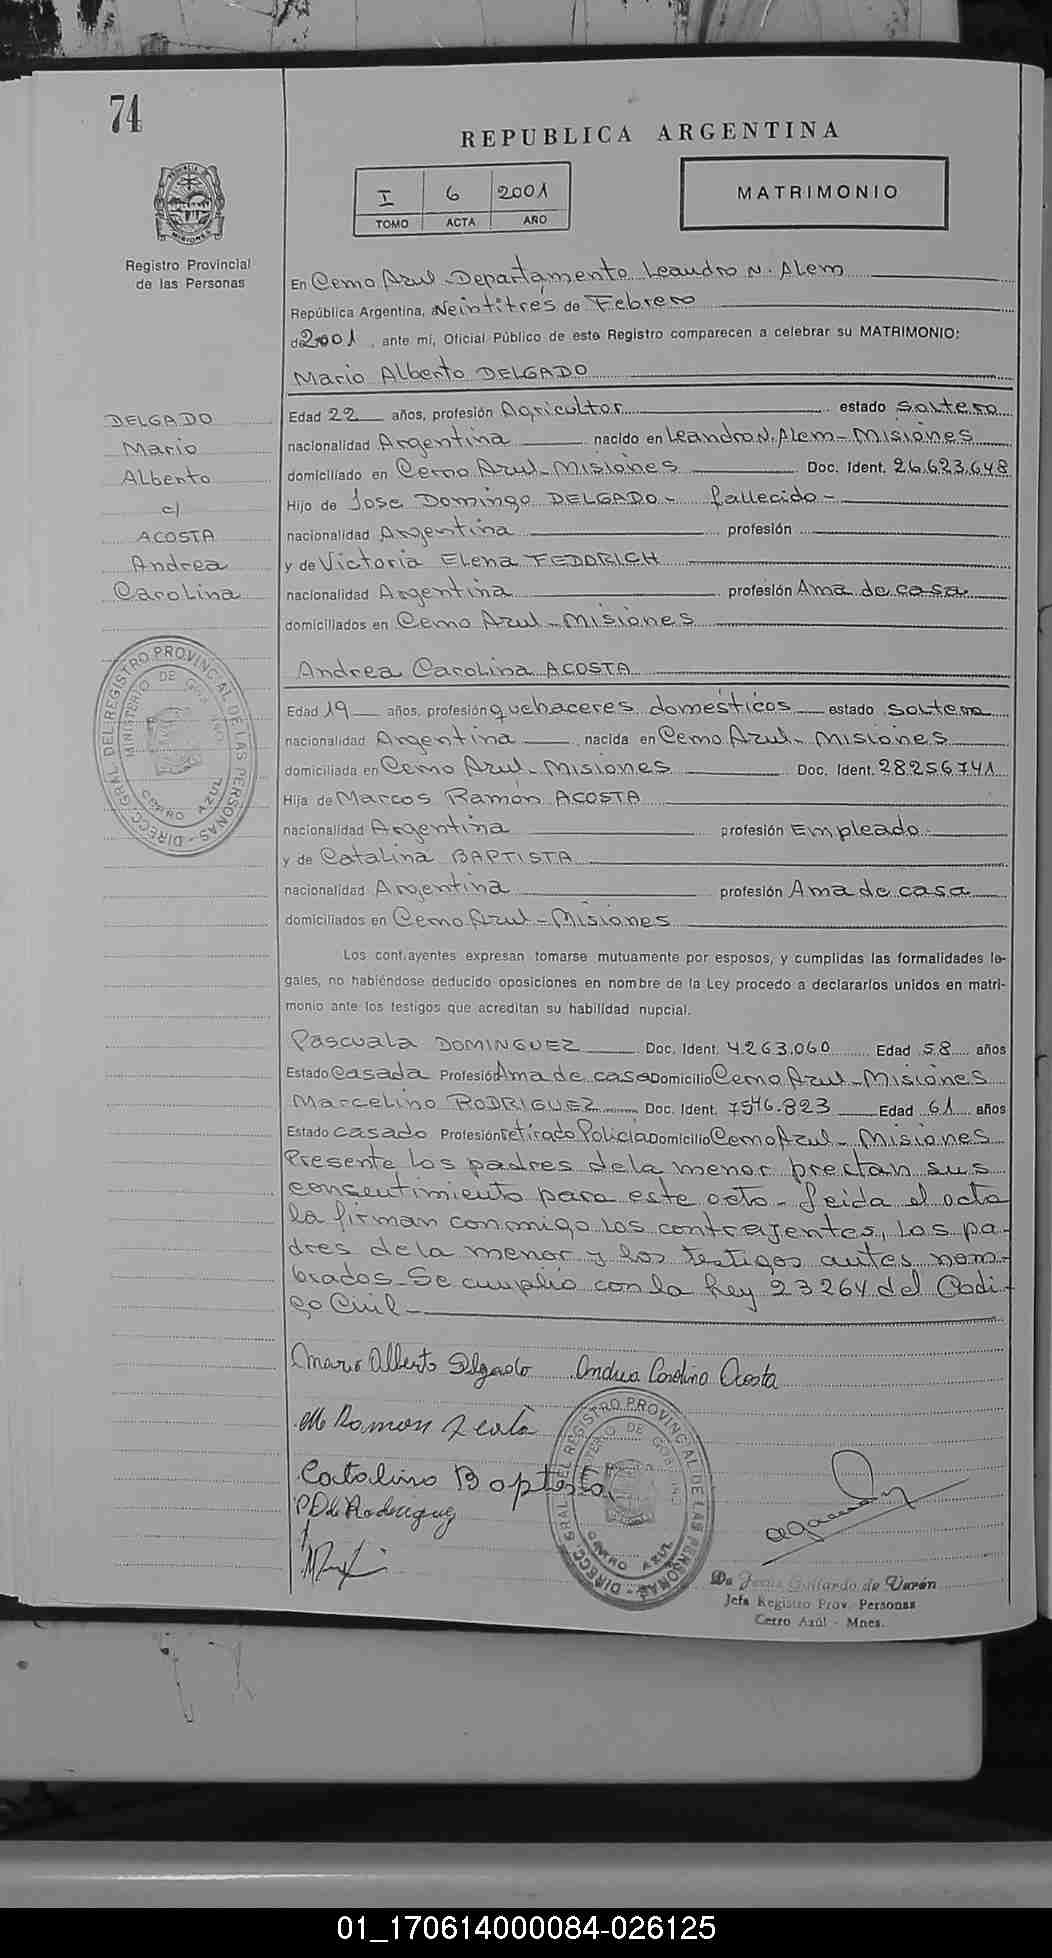 74
REPUBLICA ARGENTINA
I 6 2001
TOMO ACTA AÑO
MATRIMONIO
PROVINCIA DE MISIONES
Registro Provincial
de las Personas
En Cerro Azul - Departamento Leandro N. Alem
República Argentina, a Veintitres de Febrero
de 2001, ante mí, Oficial Público de este Registro comparecen a celebrar su MATRIMONIO:
Mario Alberto DELGADO
DELGADO
Mario
Alberto
c/
ACOSTA
Andrea
Carolina
Edad 22 años, profesión Agricultor estado soltero
nacionalidad Argentina nacido en Leandro N. Alem - Misiones
domiciliado en Cerro Azul - Misiones Doc. Ident. 26.623.648
Hijo de Jose Domingo DELGADO - fallecido -
nacionalidad Argentina profesión
y de Victoria Elena FEDORICH
nacionalidad Argentina profesión Ama de casa
domiciliados en Cerro Azul - Misiones
Andrea Carolina ACOSTA
Edad 19 años, profesión quehaceres domésticos estado soltera
nacionalidad Argentina nacida en Cerro Azul - Misiones
domiciliada en Cerro Azul - Misiones Doc. Ident. 28256741
Hija de Marcos Ramón ACOSTA
nacionalidad Argentina profesión Empleado
y de Catalina BAPTISTA
nacionalidad Argentina profesión Ama de casa
domiciliados en Cerro Azul - Misiones
DIRECC. GRAL. DEL REGISTRO PROVINCIAL DE LAS PERSONAS
MINISTERIO DE GOBIERNO
CERRO AZUL
Los contrayentes expresan tomarse mutuamente por esposos, y cumplidas las formalidades le-
gales, no habiéndose deducido oposiciones en nombre de la Ley procedo a declararlos unidos en matri-
monio ante los testigos que acreditan su habilidad nupcial.
Pascuala DOMINGUEZ Doc. Ident. 4.263.060 Edad 58 años
Estado Casada Profesión Ama de casa Domicilio Cerro Azul - Misiones
Marcelino RODRIGUEZ Doc. Ident. 7546.823 Edad 61 años
Estado casado Profesión retirado Policia Domicilio Cerro Azul - Misiones
Presente los padres de la menor prectan sus
consentimiento para este acto - Leida el acta
la firman conmigo los contrajentes, los pa-
dres de la menor y los testigos antes nom-
brados - Se cumplió con la Ley 23264 del Codi-
go Civil -
Mario Alberto Delgado Andrea Carolina Acosta
M Ramon
Catalina Baptista
P D de Rodriguez
DIRECC. GRAL. DEL REGISTRO PROVINCIAL DE LAS PERSONAS
MINISTERIO DE GOBIERNO
CERRO AZUL
Gallardo de Varón
Jefa Registro Prov. Personas
Cerro Azúl - Mnes.
01_170614000084-026125